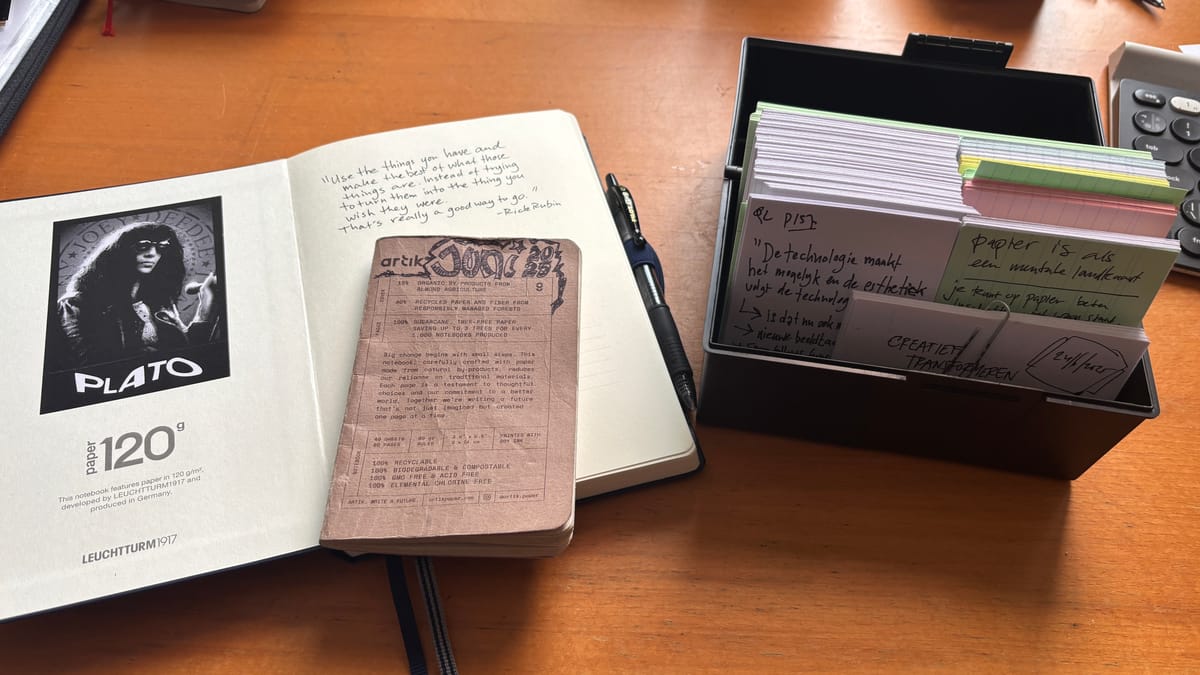 JOEY DEEDEE
PLATO
paper 120g
This notebook features paper in 120 g/m²,
developed by LEUCHTTURM1917 and
produced in Germany.
LEUCHTTURM1917
"Use the things you have and
make the best of what those
things are. Instead of trying
to turn them into the thing you
wish they were.
That's really a good way to go."
-Rick Rubin
artik
Joni 2025
9
COVER
15% ORGANIC BY-PRODUCTS FROM
ALMOND AGRICULTURE
40% RECYCLED PAPER AND FIBER FROM
RESPONSIBLY-MANAGED FORESTS
PAGES
100% SUGARCANE, TREE-FREE PAPER
SAVING UP TO 3 TREES FOR EVERY
1,000 NOTEBOOKS PRODUCED
Big change begins with small steps. This
notebook, carefully crafted with paper
made from natural by-products, reduces
our reliance on traditional materials.
Each page is a testament to thoughtful
choices and our commitment to a better
world. Together we're writing a future
that's not just imagined but created
one page at a time.
40 SHEETS
80 PAGES
RULED
PRINTED WITH
SOY INK
NOTEBOOK
100% RECYCLABLE
100% BIODEGRADABLE & COMPOSTABLE
100% GMO FREE & ACID FREE
100% ELEMENTAL CHLORINE FREE
ARTIK. WRITE A FUTURE
artikpaper.com
@artik.paper
QL
"De technologie maakt
het mogelijk en de esthetiek
volgt de technolog
→ Is dat nu ook
→ nieuwe beeldtaa
papier is als
een mentale landkaart
je kunt op papier beter
CREATIEF
TRANSFORMEREN
esc
tab